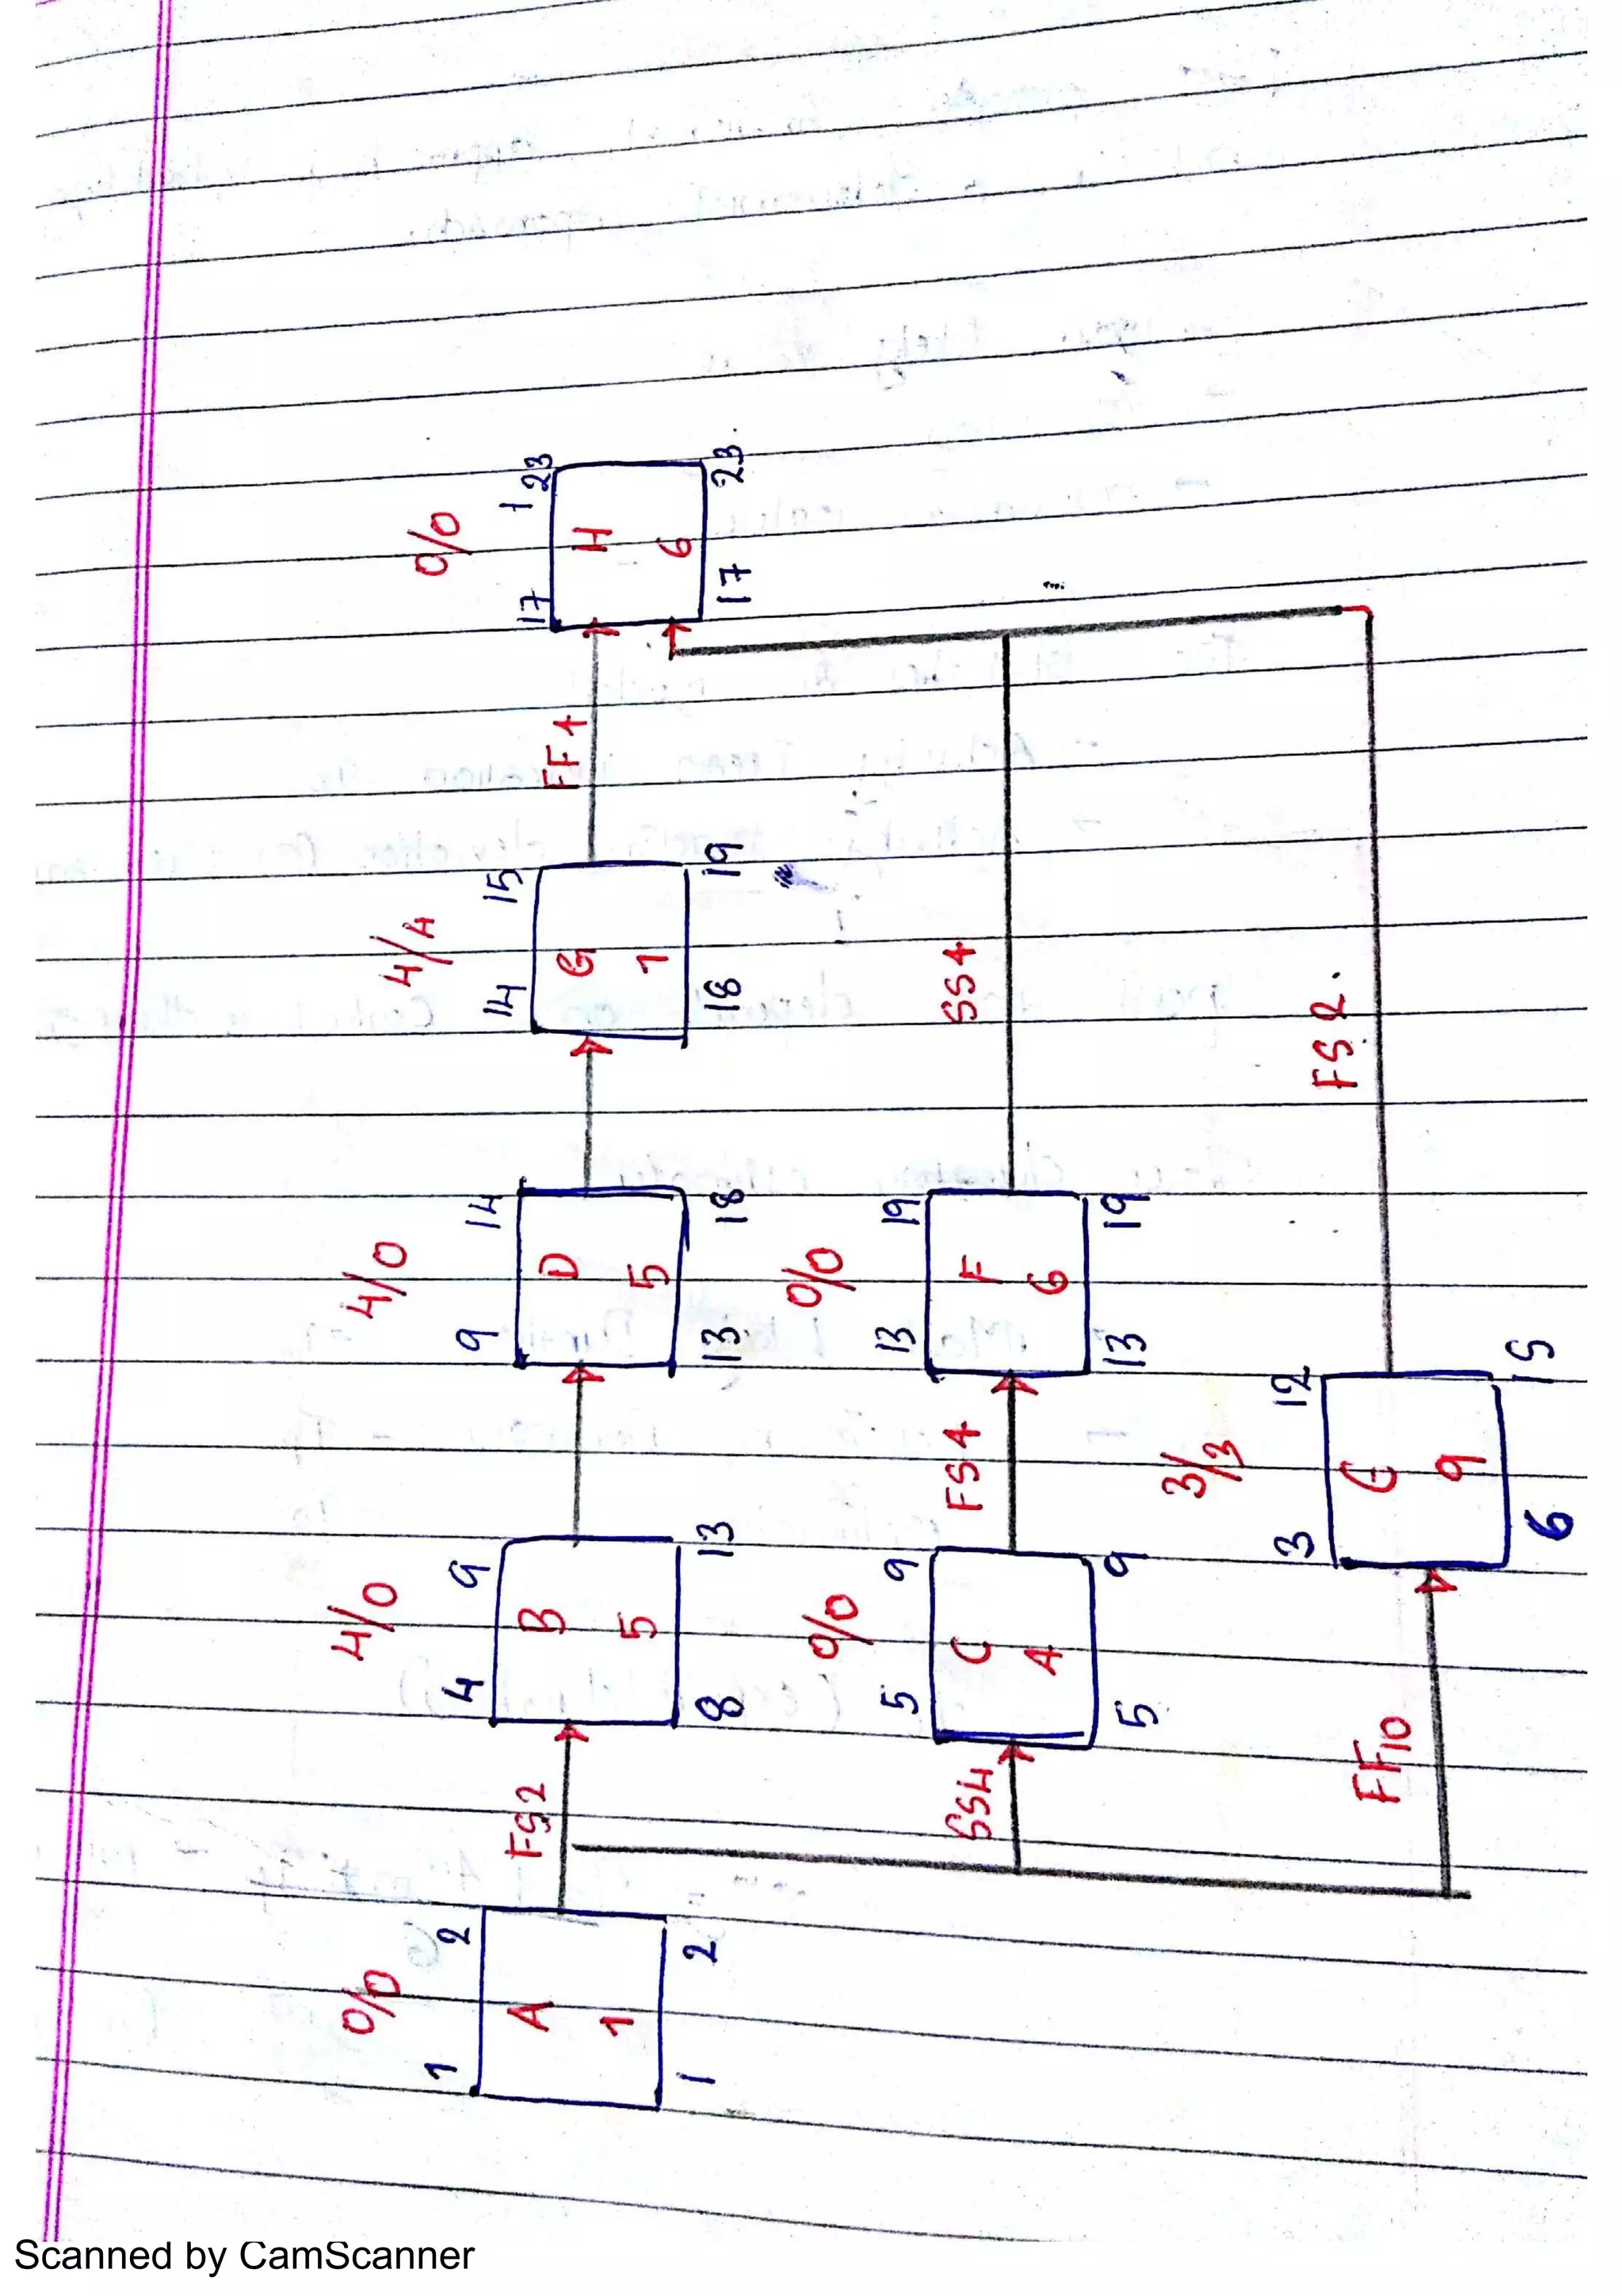 0/0 4/0 4/0 4/4 0/0
1 2 4 9 9 14 14 15 17 1 23
A FS2 B D G FF4 H
1 5 5 1 6
1 2 8 13 13 18 18 19 17 23
0/0 0/0
5 9 13 19
SS4 C FS4 F SS4
4 6
5 9 13 19
3/3
3 12
FF10 E FS2
9
6 15
Scanned by CamScanner